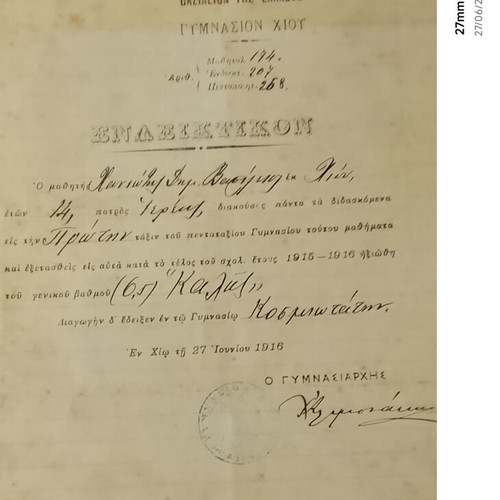 ΒΑΣΙΛΕΙΟΝ ΤΗΣ ΕΛΛΑΔΟΣ
ΓΥΜΝΑΣΙΟΝ ΧΙΟΥ
Μαθητολ. 194.
Ἀριθ. Ἐνδεικτ. 207
Πιστοποιητ. 258.
ΕΝΔΕΙΚΤΙΚΟΝ
Ὁ μαθητὴς Δημ. Βασίλειος ἐκ Χίου,
ἐτῶν 14, πατρὸς Ἱερέως, διακούσας πάντα τὰ διδασκόμενα
εἰς τὴν Πρώτην τάξιν τοῦ πενταταξίου Γυμνασίου τούτου μαθήματα
καὶ ἐξετασθεὶς εἰς αὐτὰ κατὰ τὸ τέλος τοῦ σχολ. ἔτους 1915-1916 ἠξιώθη
τοῦ γενικοῦ βαθμοῦ "Καλῶς"
Διαγωγὴν δ' ἔδειξεν ἐν τῷ Γυμνασίῳ Κοσμιωτάτην.
Ἐν Χίῳ τῇ 27 Ἰουνίου 1916
Ο ΓΥΜΝΑΣΙΑΡΧΗΣ
27mm
27/06/2